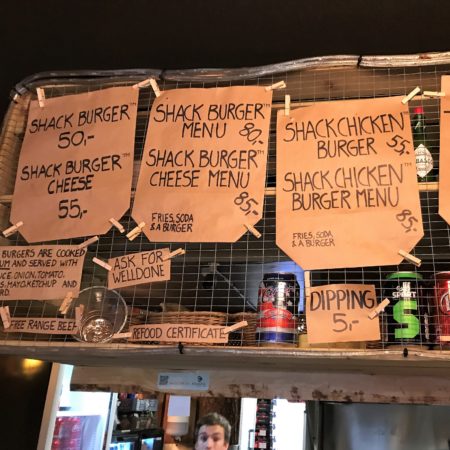 SHACK BURGER™
50,-
SHACK BURGER™
CHEESE
55,-
SHACK BURGER™
MENU 80,-
SHACK BURGER™
CHEESE MENU
85,-
FRIES, SODA
& A BURGER
SHACK CHICKEN™
BURGER 55,-
SHACK CHICKEN™
BURGER MENU
85,-
FRIES, SODA
& A BURGER
BURGERS ARE COOKED
UM AND SERVED WITH
UCE, ONION, TOMATO,
S, MAYO, KETCHUP AND
RD.
ASK FOR
WELLDONE
FREE RANGE BEEF
REFOOD CERTIFICATE
DIPPING
5,-
TABASCO